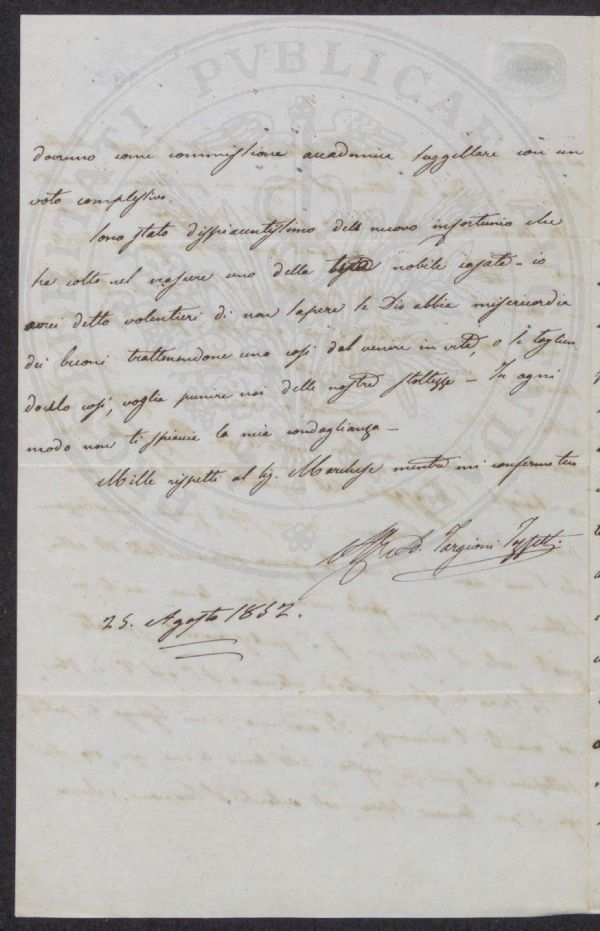 dovremo come commissione accademica suggellare con un
voto complessivo.
Sono stato dispiacentissimo della nuovo infortunio che
ha colto nel nascere uno della nobile casata - io
avrei detto volentieri di non sapere se Dio abbia misericordia
dei buoni trattenendone uno così dal venire in vita, o se toglien
docelo così, voglia punire noi delle nostre stoltezze - In ogni
modo non ti spiaccia la mia condoglianza -
Mille rispetti al Sig. Marchese mentre mi confermo tuo
Aff. A. Targioni Tozzetti
25. Agosto 1852.
PUBLICAE